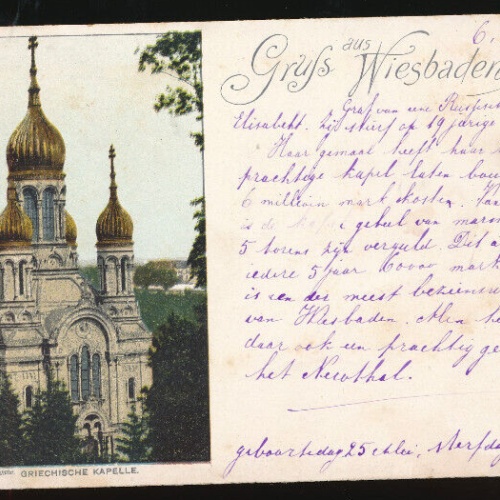 Gruss aus Wiesbaden
6.
Graf van een Russisch
Elisabeth. Zij stierf op 19 jarige
Haar gemaal heeft haar
prachtige kapel laten bou
6 millioen mark kosten. Van
is de geheel van marm
5 torens zijn verguld. Dit
iedere 5 jaar 60000 mark
is een der meest beziensw
van Wiesbaden. Men he
daar ook een prachtig ge
het Nerothal.
geboortedag 25 Mei, sterfda
GRIECHISCHE KAPELLE.